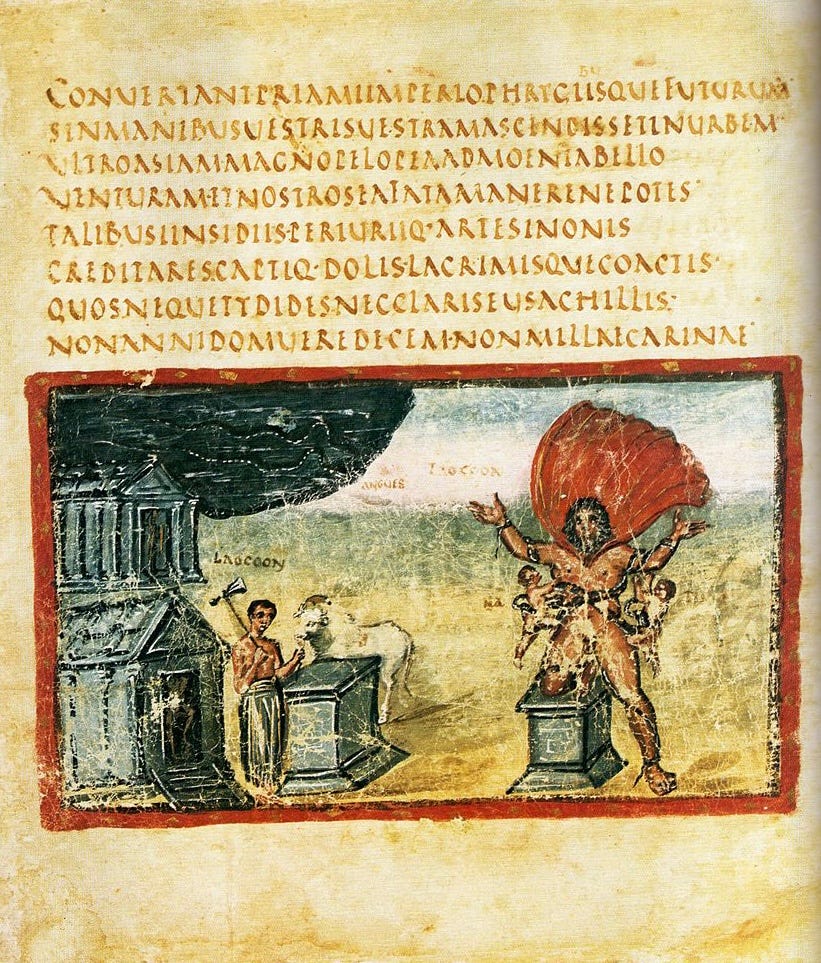 BU
CONUERTANTPRIAMIIMPERIOPHRYGIISQUEFUTURUM
SINMANIBUSUESTRISUESTRAMASCENDISSETINURBEM
ULTROASIAMMAGNOPELOPEAADMOENIABELLO
UENTURAMETNOSTROSEAFATAMANERENEPOTES
TALIBUSINSIDIISPERIURIIQ·ARTESINONIS
CREDITARESCAPTIQ·DOLISLACRIMISQUECOACTIS
QUOSNEQUETYDIDESNECCLARISEUSACHILLIS
NONANNIDOMUEREDECEM·NONMILLAECARINAE
LAOCOON
ANGUES
LAOCOON
NA